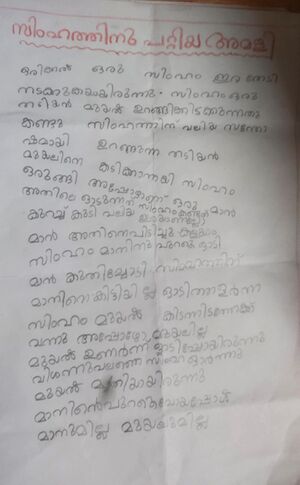 സിംഹത്തിനു പറ്റിയ അമളി
ഒരിക്കൽ ഒരു സിംഹം ഇര തേടി
നടക്കുകയായിരുന്നു. സിംഹം ഒരു
തടിയൻ മുയൽ ഉറങ്ങിക്കിടക്കുന്നതു
കണ്ടു സിംഹത്തിന് വലിയ സന്തോ
ഷമായി ഉറങ്ങുന്ന തടിയൻ
മുയലിനെ കടിക്കാനായി സിംഹം
ഒരുങ്ങി അപ്പോളാണ് ഒരു മാൻ
അതിലെ ഓടുന്നത് സിംഹം കണ്ടത്
കുറച്ച് കൂടി വലിയ
മാൻ അതിനെപിടിച്ചു കളയാം
സിംഹം മാനിനു പുറകെ ഓടി
മാൻ കുതിച്ചോടി സിംഹത്തിന്
മാനിനെ കിട്ടിയി ല്ല ഓടിത്തളർന്ന
സിംഹം മുയൽ കിടന്നിടത്തേക്ക്
വന്നു അപ്പോഴോ മുയലില്ല
മുയൽ ഉണർന്ന് ഓടിപ്പോയിരുന്നു
വിശന്നുവലഞ്ഞ സിംഹം ഓർത്തു
മുയൽ മതിയായിരുന്നു
മാനിന്റെപുറകെപോയപ്പോൾ
മാനുമില്ല മുയലുമില്ല